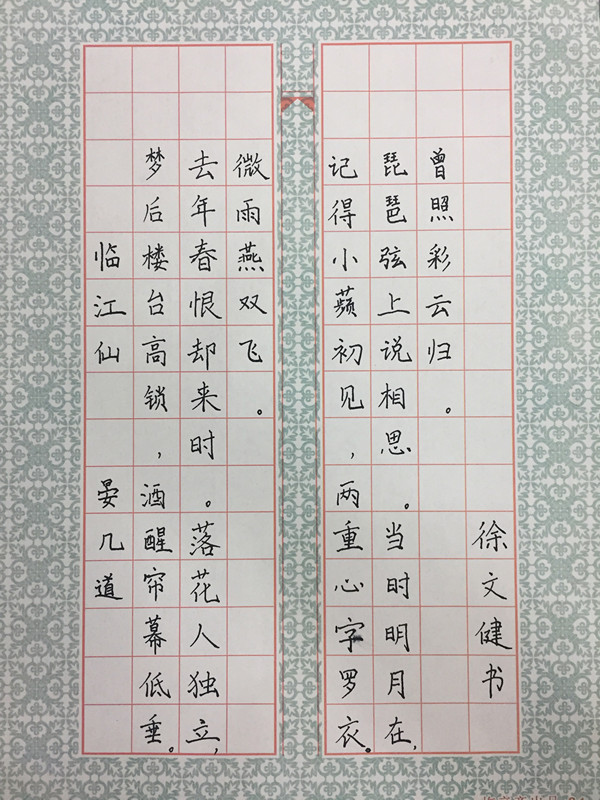 临江仙 晏几道
梦后楼台高锁，酒醒帘幕低垂。
去年春恨却来时。落花人独立，
微雨燕双飞。
记得小蘋初见，两重心字罗衣。
琵琶弦上说相思。当时明月在，
曾照彩云归。
徐文健书